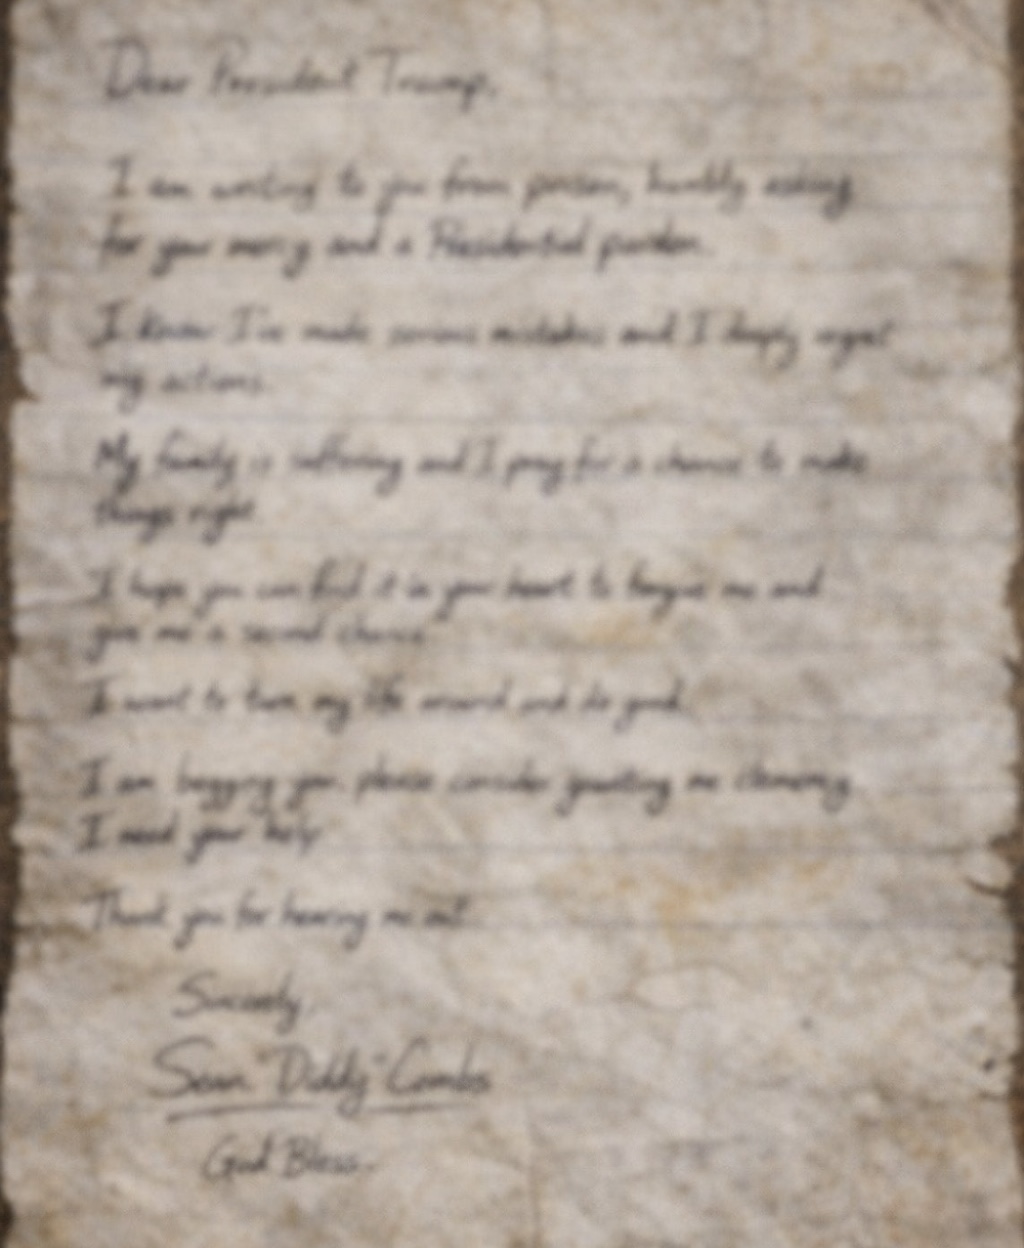 Dear President Trump,
I am writing to you from prison, humbly asking
for your mercy and a Presidential pardon.
I know I've made serious mistakes and I deeply regret
my actions.
My family is suffering and I pray for a chance to make
things right.
I hope you can find it in your heart to forgive me and
give me a second chance.
I want to turn my life around and do good.
I am begging you, please consider granting me clemency.
I need your help.
Thank you for hearing me out.
Sincerely,
Sean "Diddy" Combs
God Bless.